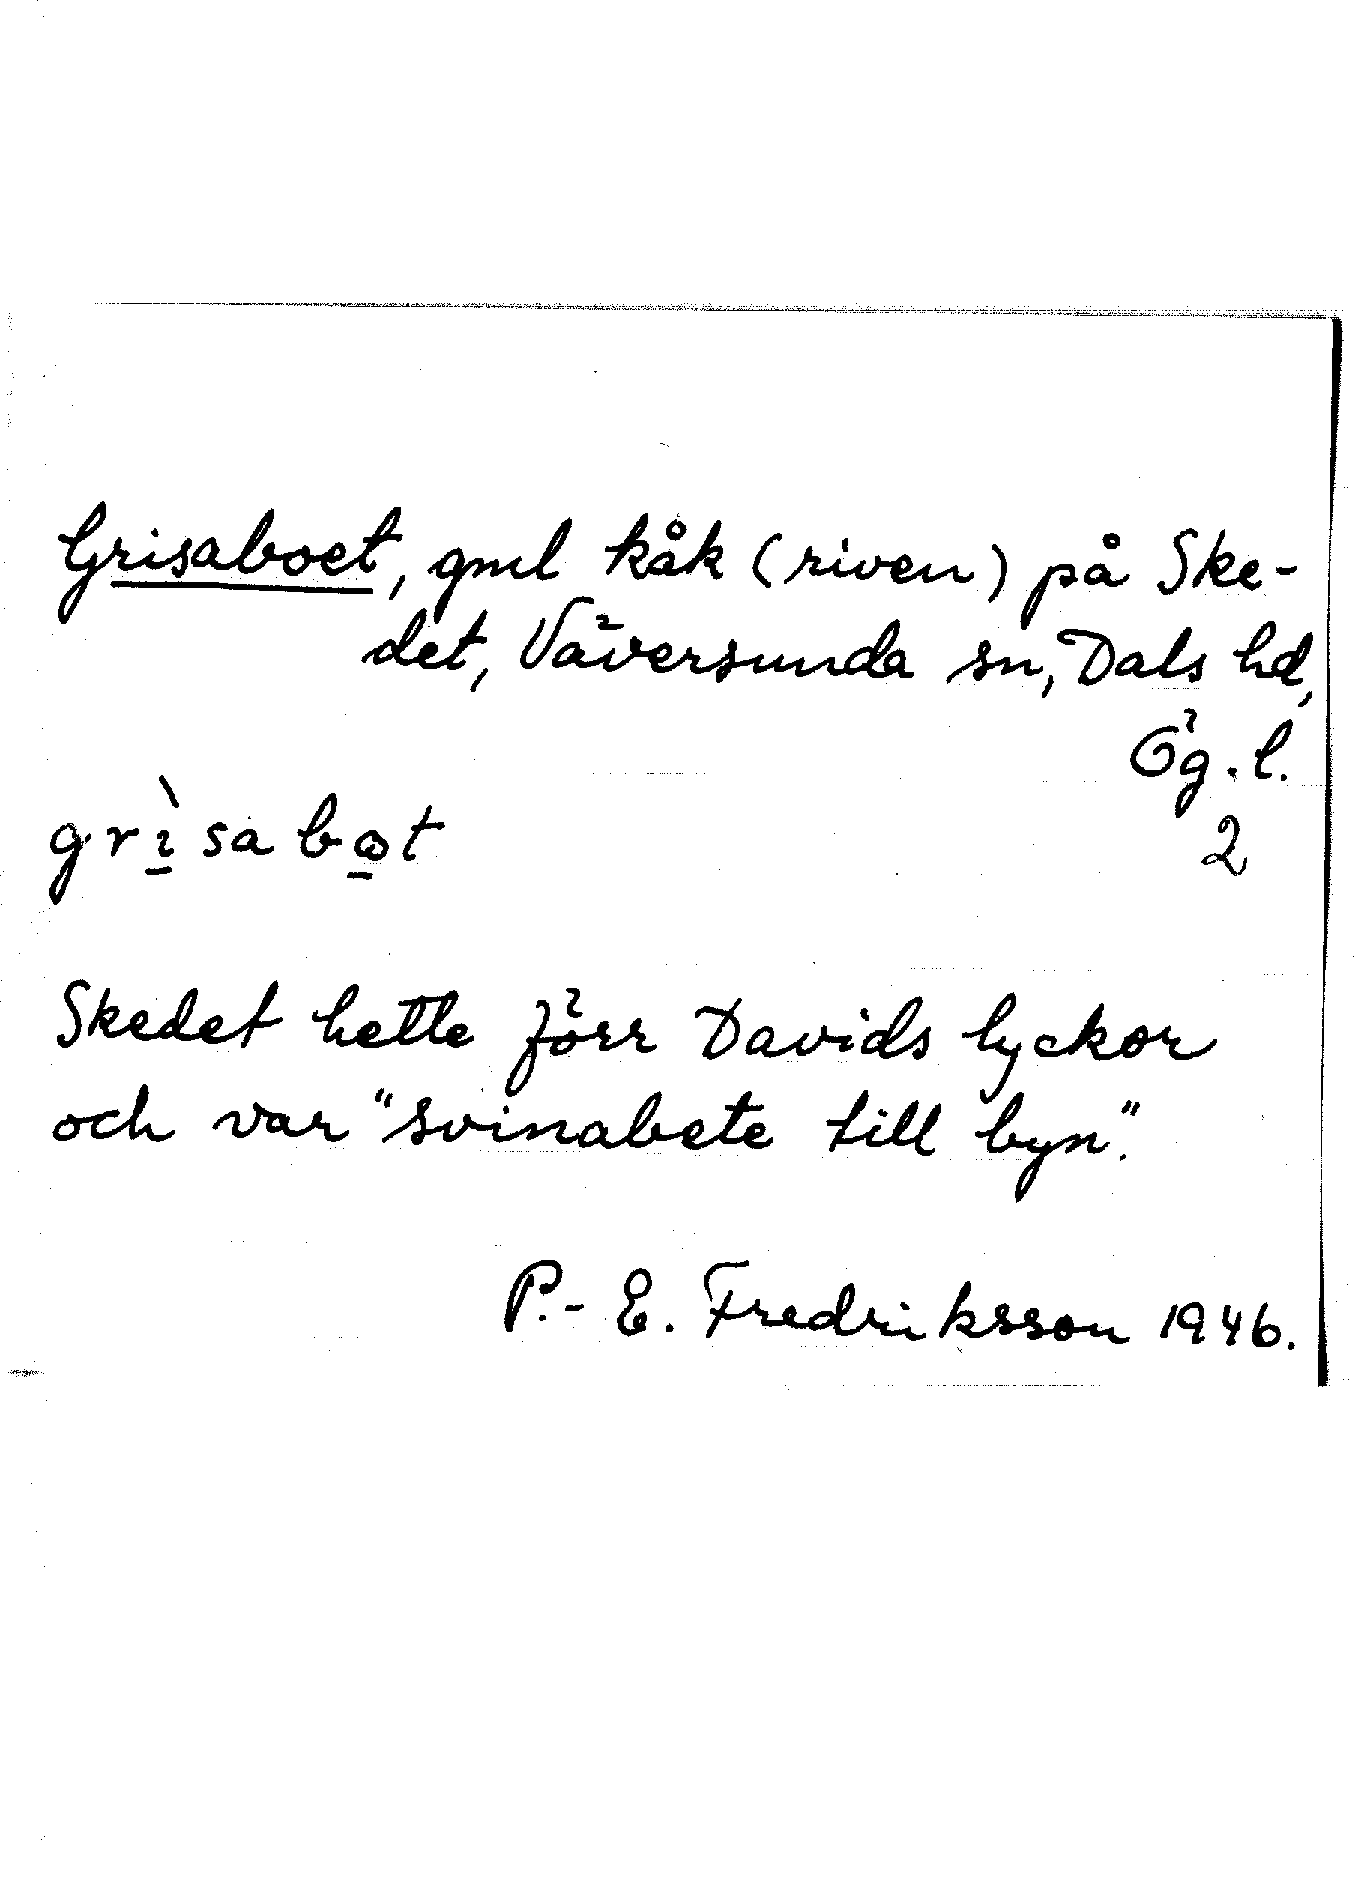 Grisaboet, gml kåk (riven) på Ske-
det, Väversunda sn, Dals hd,
Ög. l.
grı̀sabꙍt
2
Skedet hette förr Davids lyckor
och var "svinabete till byn".
P.-E. Fredriksson 1946.